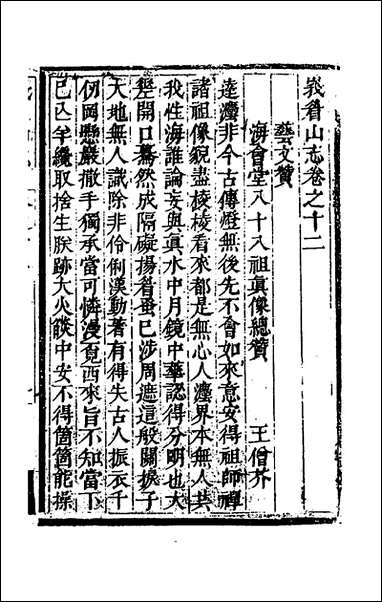 峩眉山志卷之十二
藝文贊
海會堂八十八祖眞像總贊 王僧芥
達灋非今古傳燈無後先不會如來意安得祖師禪
諸祖像貌盡棱棱看來都是無心人灋界本無人共
我性海誰論妄與眞水中月鏡中華認得分明也大
錯開口驀然成隔礙揚眉蚤已涉周遮這般關捩子
大地無人識除非伶俐漢動著有得失古人振衣千
仞岡懸嚴撒手獨承當可憐漫覓西來旨不知當下
已亾羊纔取捨生朕跡大火燄中安不得箇箇能操